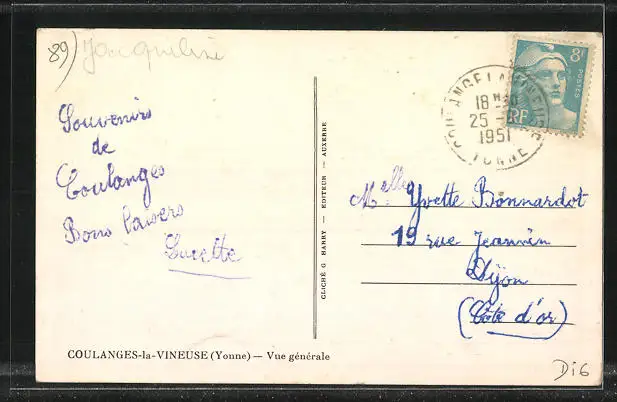 89)
Jacqueline
Souvenirs
de
Coulanges
Bons baisers
Lucette
COULANGES-la-VINEUSE (Yonne) — Vue générale
CLICHÉ G HARRY — EDITEUR — AUXERRE
COULANGES LA VINEUSE
18 H
25 -
1951
YONNE
8F
POSTES
RF
Melle Yvette Bonnardot
19 rue Jeannin
Dijon
(Côte d'or)
Di6